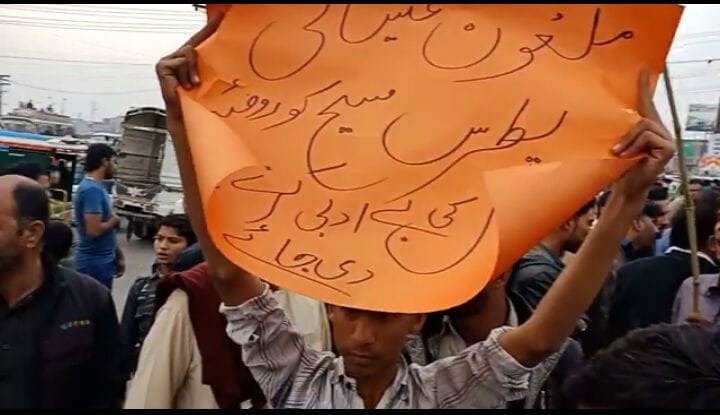 ملعون عیسائی
پطرس مسیح کو روضئہ
کی بے ادبی پر
دی جائے